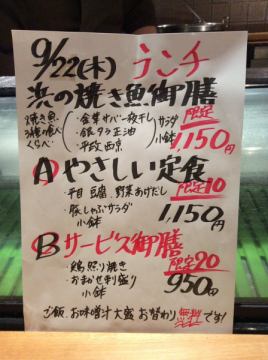 9/22(木) ランチ
浜の焼き魚御膳
焼き魚 ・金華サバ一夜干し サラダ 限定
3種喰べくらべ ・銀タラ正油 小鉢 1,150円
・平政西京
A やさしい定食
・平目 豆腐 野菜あげだし 限定10
・豚しゃぶサラダ 1,150円
小鉢
B サービス御膳
・鶏照り焼き 限定20
・おまかせ刺し盛り 950円
小鉢
ご飯、お味噌汁大盛 お替わり 無料です!